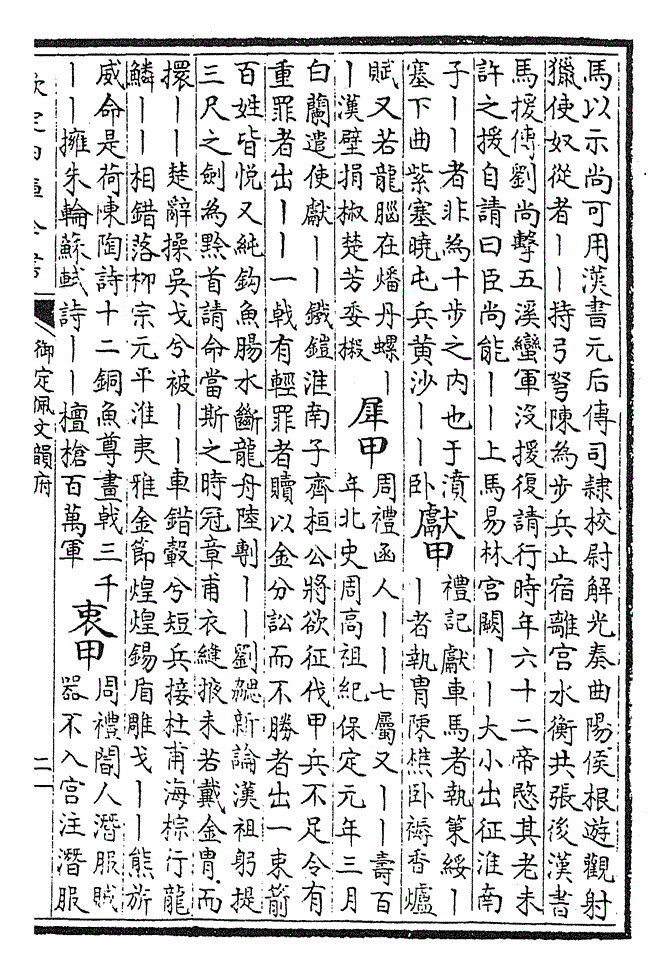 馬以示尚可用漢書元后傳司隸校尉解光奏曲陽侯根遊觀射
獵使奴從者丨丨持弓弩陳為步兵止宿離宮水衡共張後漢書
馬援傳劉尚擊五溪蠻軍沒援復請行時年六十二帝愍其老未
許之援自請曰臣尚能丨丨上馬易林宮闕丨丨大小出征淮南
子丨丨者非為十步之内也于濆
塞下曲紫塞曉屯兵黄沙丨丨卧
獻甲
禮記獻車馬者執策綏丨
丨者執胄陳樵卧褥香爐
賦又若龍腦在燔丹螺丨
丨漢壁捐椒楚芳委椴
犀甲
周禮函人丨丨七屬又丨丨壽百
年北史周高祖紀保定元年三月
白蘭遣使獻丨丨鐵鎧淮南子齊桓公將欲征伐甲兵不足令有
重罪者出丨丨一戟有輕罪者贖以金分訟而不勝者出一束箭
百姓皆悦又純鈎魚腸水斷龍舟陸剸丨丨劉勰新論漢祖躬提
三尺之劍為黔首請命當斯之時冠章甫衣縫掖未若戴金胄而
擐丨丨楚辭操吳戈兮被丨丨車錯轂兮短兵接杜甫海棕行龍
鱗丨丨相錯落柳宗元平淮夷雅金節煌煌錫盾雕戈丨丨熊旂
威命是荷陳陶詩十二銅魚尊畫戟三千
丨丨擁朱輪蘇軾詩丨丨檀槍百萬軍
衷甲
周禮閽人潛服賊
器不入宫注潛服
欽定四庫全書
御定佩文韻府
二一